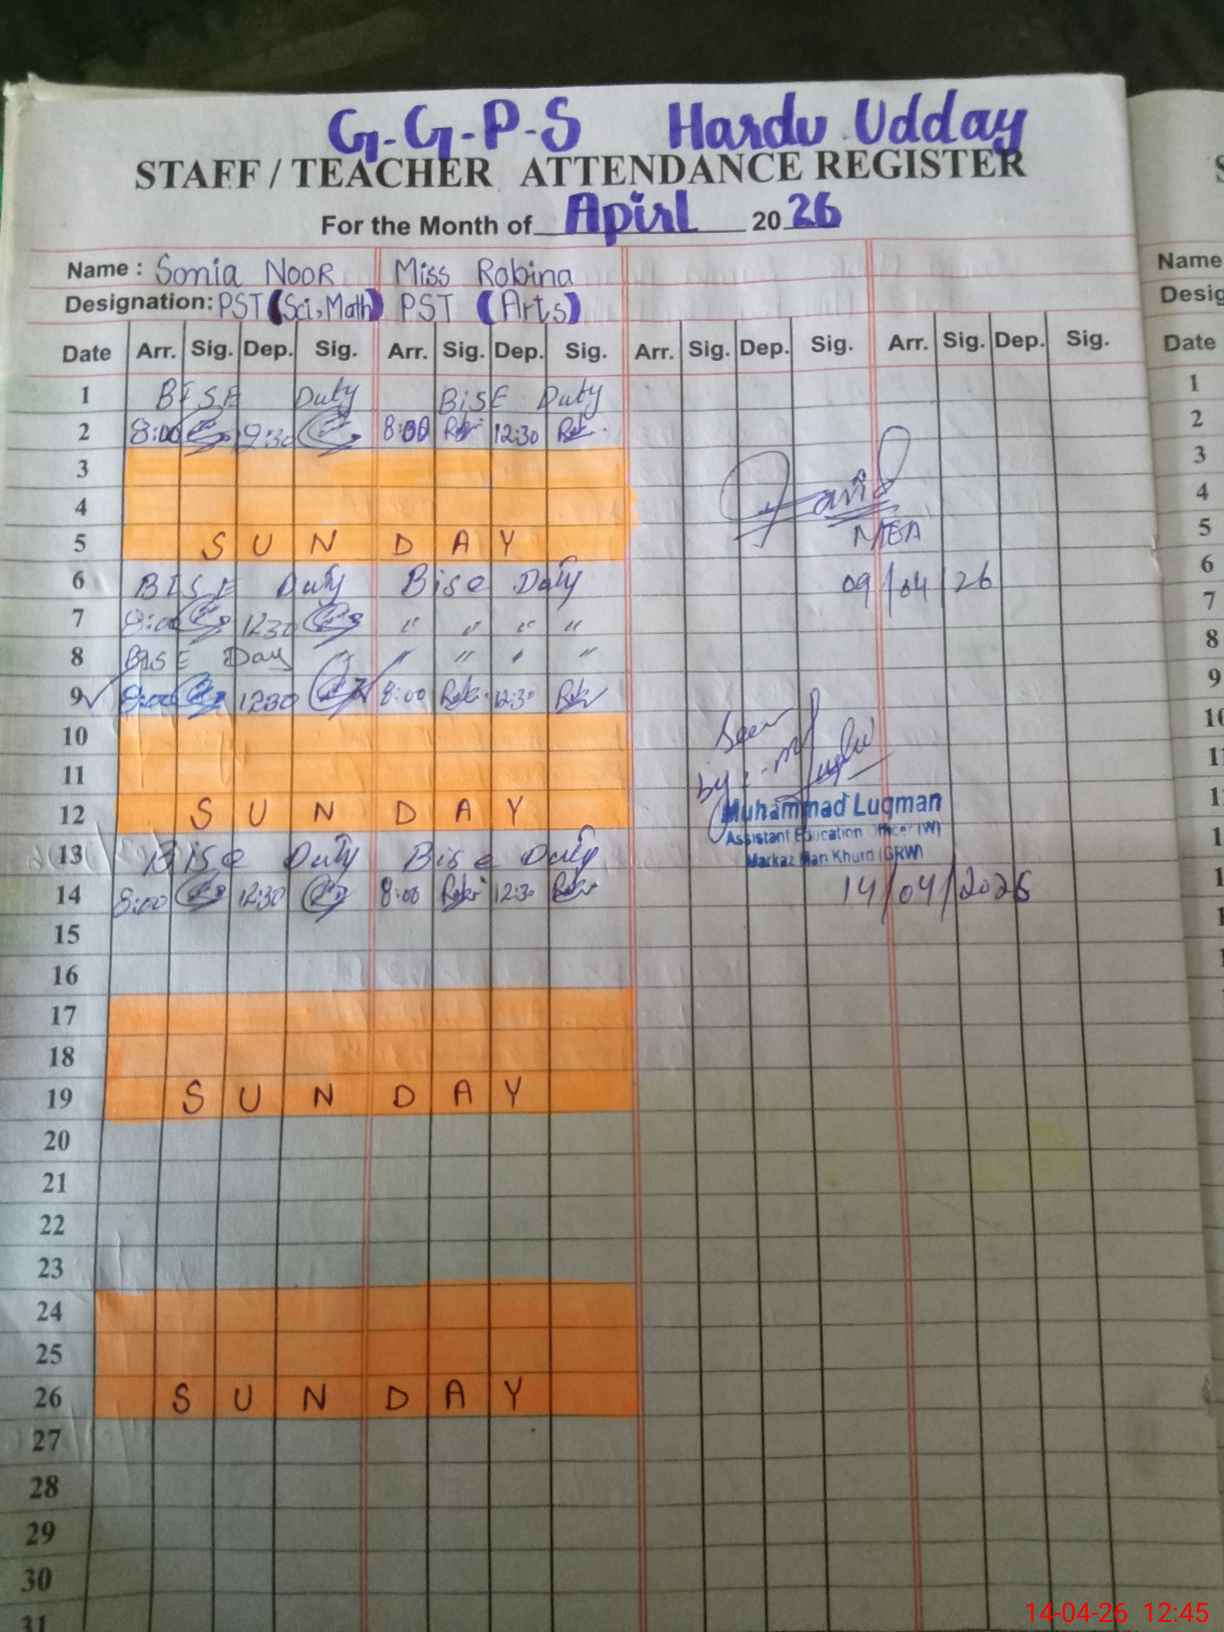 G-G-P-S Hardu Udday
STAFF / TEACHER ATTENDANCE REGISTER
For the Month of Apirl 2026
Name : Sonia Noor Miss Robina
Designation: PST (Sci, Math) PST (Arts)
Date Arr. Sig. Dep. Sig. Arr. Sig. Dep. Sig. Arr. Sig. Dep. Sig. Arr. Sig. Dep. Sig.
1 BISE Duty BISE Duty
2 8:00 8:00 12:30
3
4
5 SUNDAY
6 BISE Duty Bise Duty
7 8:00 1230 " " " "
8 BISE " "
9 8:00 1230 8:00 12:30
10
11
12 SUNDAY
13 Bise Duty Bise Duty
14 8:00 12:30 8:00 12:30
15
16
17
18
19 SUNDAY
20
21
22
23
24
25
26 SUNDAY
27
28
29
30
31
MEA
09/04/26
Seen
by
Muhammad Luqman
Assistant Education Officer (W)
Markaz Man Khurd (GRW)
14/04/2026
Name
Desig
Date
1
2
3
4
5
6
7
8
9
14-04-26 12:45